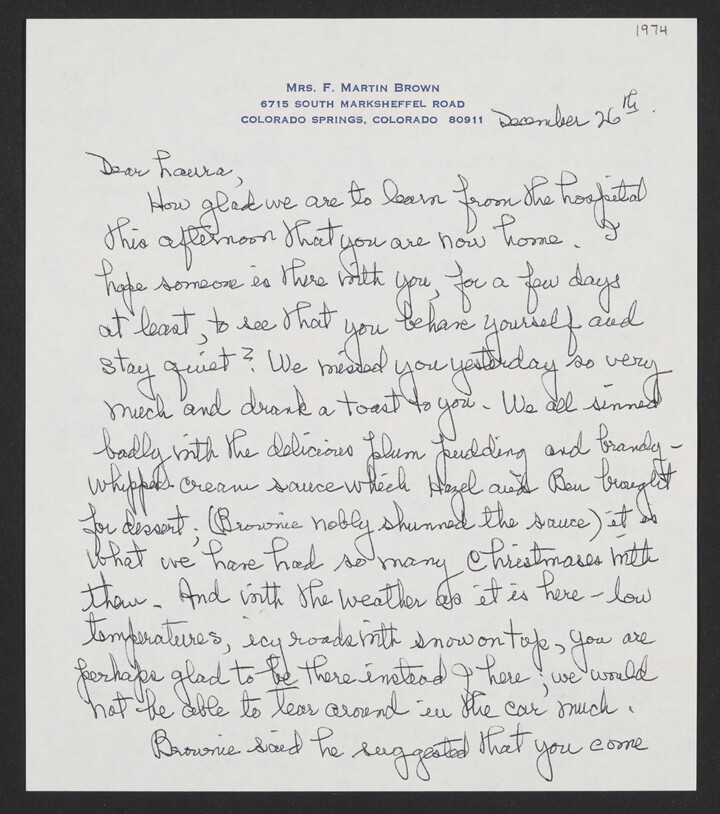 1974
MRS. F. MARTIN BROWN
6715 SOUTH MARKSHEFFEL ROAD
COLORADO SPRINGS, COLORADO 80911
December 26th.
Dear Laura,
How glad we are to learn from the hospital
this afternoon that you are now home. I
hope someone is there with you, for a few days
at least, to see that you behave yourself and
stay quiet? We missed you yesterday so very
much and drank a toast to you. We all sinned
badly with the delicious plum pudding and brandy-
whipped-cream sauce which Hazel and Ben brought
for dessert; (Brownie nobly shunned the sauce) it is
what we have had so many Christmases with
them. And with the weather as it is here - low
temperatures, icy roads with snow on top, you are
perhaps glad to be there instead of here; we would
not be able to tear around in the car much.
Brownie said he suggested that you come